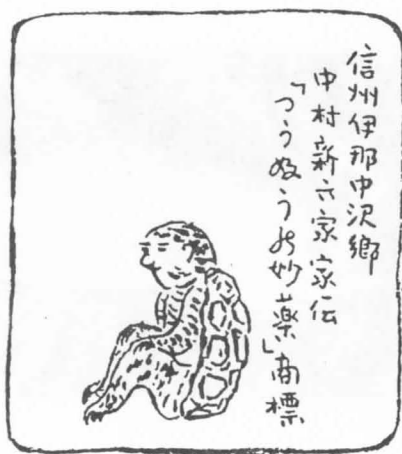 信州伊那中沢郷
中村新六家家伝
「つうぬうの妙薬」商標